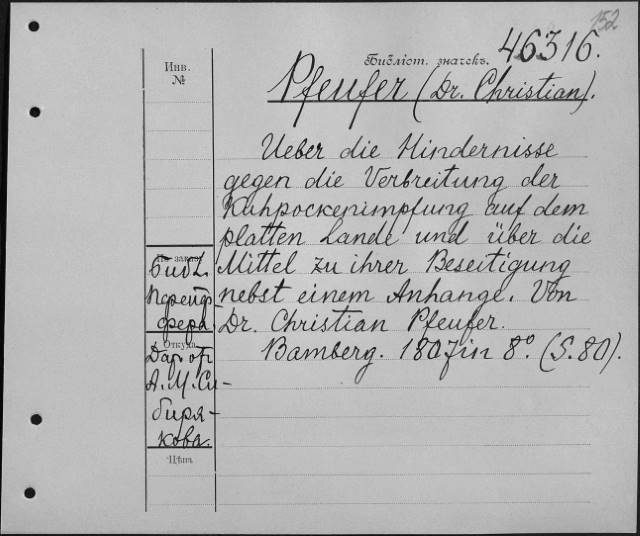 152
Библіот. значекъ. 46316.
Инв.
№
Pfeufer (Dr. Christian).
Ueber die Hindernisse
gegen die Verbreitung der
Kuhpockenimpfung auf dem
platten Lande und über die
Mittel zu ihrer Beseitigung
nebst einem Anhange. Von
Dr. Christian Pfeufer.
Bamberg. 1807 in 8º. (S. 80).
Библ.
Пфейф-
фера
Откуда
Дар от
А. М. Си-
биря-
кова.
Цѣна